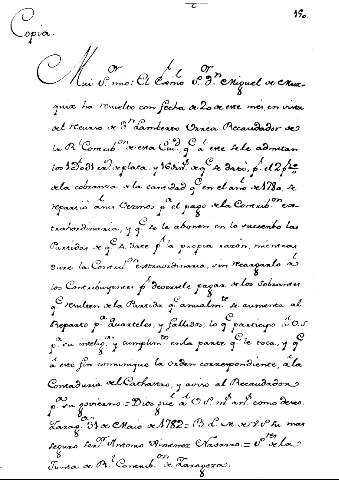 190.
Copia.
Mui S.or mio: El Exmo S.or D.n Miguel de Muz-
quiz ha resuelto con fecha de 20 de este mes, en vista
del recurso de D.n Lamberto Urrea Recaudador de
la R.l Contrib.on de esta Ciud.d q.e á este se le admitan
los rs de plata, y 16 din.s de q.e se dató, p.r el 2 p%
de la cobranza de la cantidad q.e en el año de 1780 se
repartió á sus vecinos p.a el pago de la Contrib.on ex-
traordinaria, y q.e se le abonen en lo succesibo las
Partidas de q.e se date p.r la propia razón, mientras
dure la Contrib.on extraordinaria, sin recargarlo á
los Contribuyentes p.r deverse le pagar de los Sobrantes
q.e resulten de la Partida q.e anualm.te se aumenta al
Reparto p.a Quarteles, y fallidos: lo q.e participo á V.S
p.a su intelig.a y cumplim.to en la parte q.e le toca, y q.e
á este fin comunique la orden correspondiente, á la
Contaduria del Cathastro, y aviso al Recaudador
p.a su govierno = Dios gue á V.S m.s an.s como deseo.
Zarag.a 31 de Maio de 1782 = B.L.M. de V.S su mas
seguro ser.or Antonio Ximenez Navarro = S.res de la
Junta de R.l Contrib.on de Zaragoza.